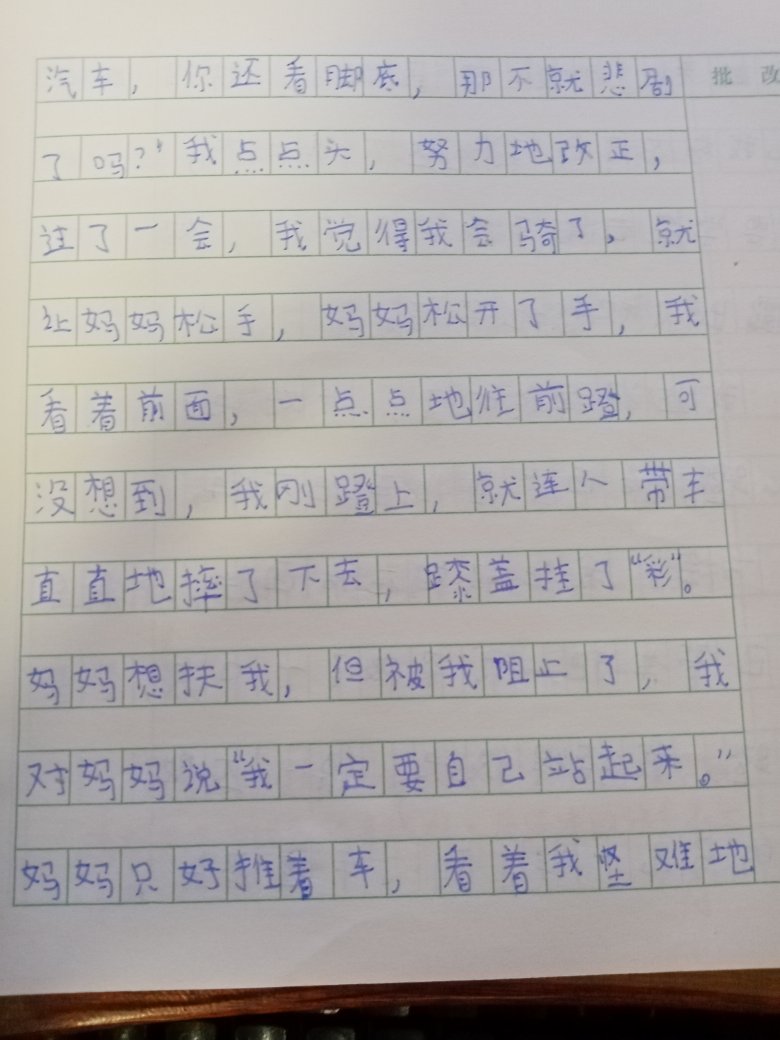 汽车，你还看脚底，那不就悲剧 批 改
了吗？”我点点头，努力地改正，
过了一会，我觉得我会骑了，就
让妈妈松手，妈妈松开了手，我
看着前面，一点点地往前蹬，可
没想到，我刚蹬上，就连人带车
直直地摔了下去，膝盖挂了“彩”。
妈妈想扶我，但被我阻止了，我
对妈妈说“我一定要自己站起来。”
妈妈只好推着车，看着我 难地